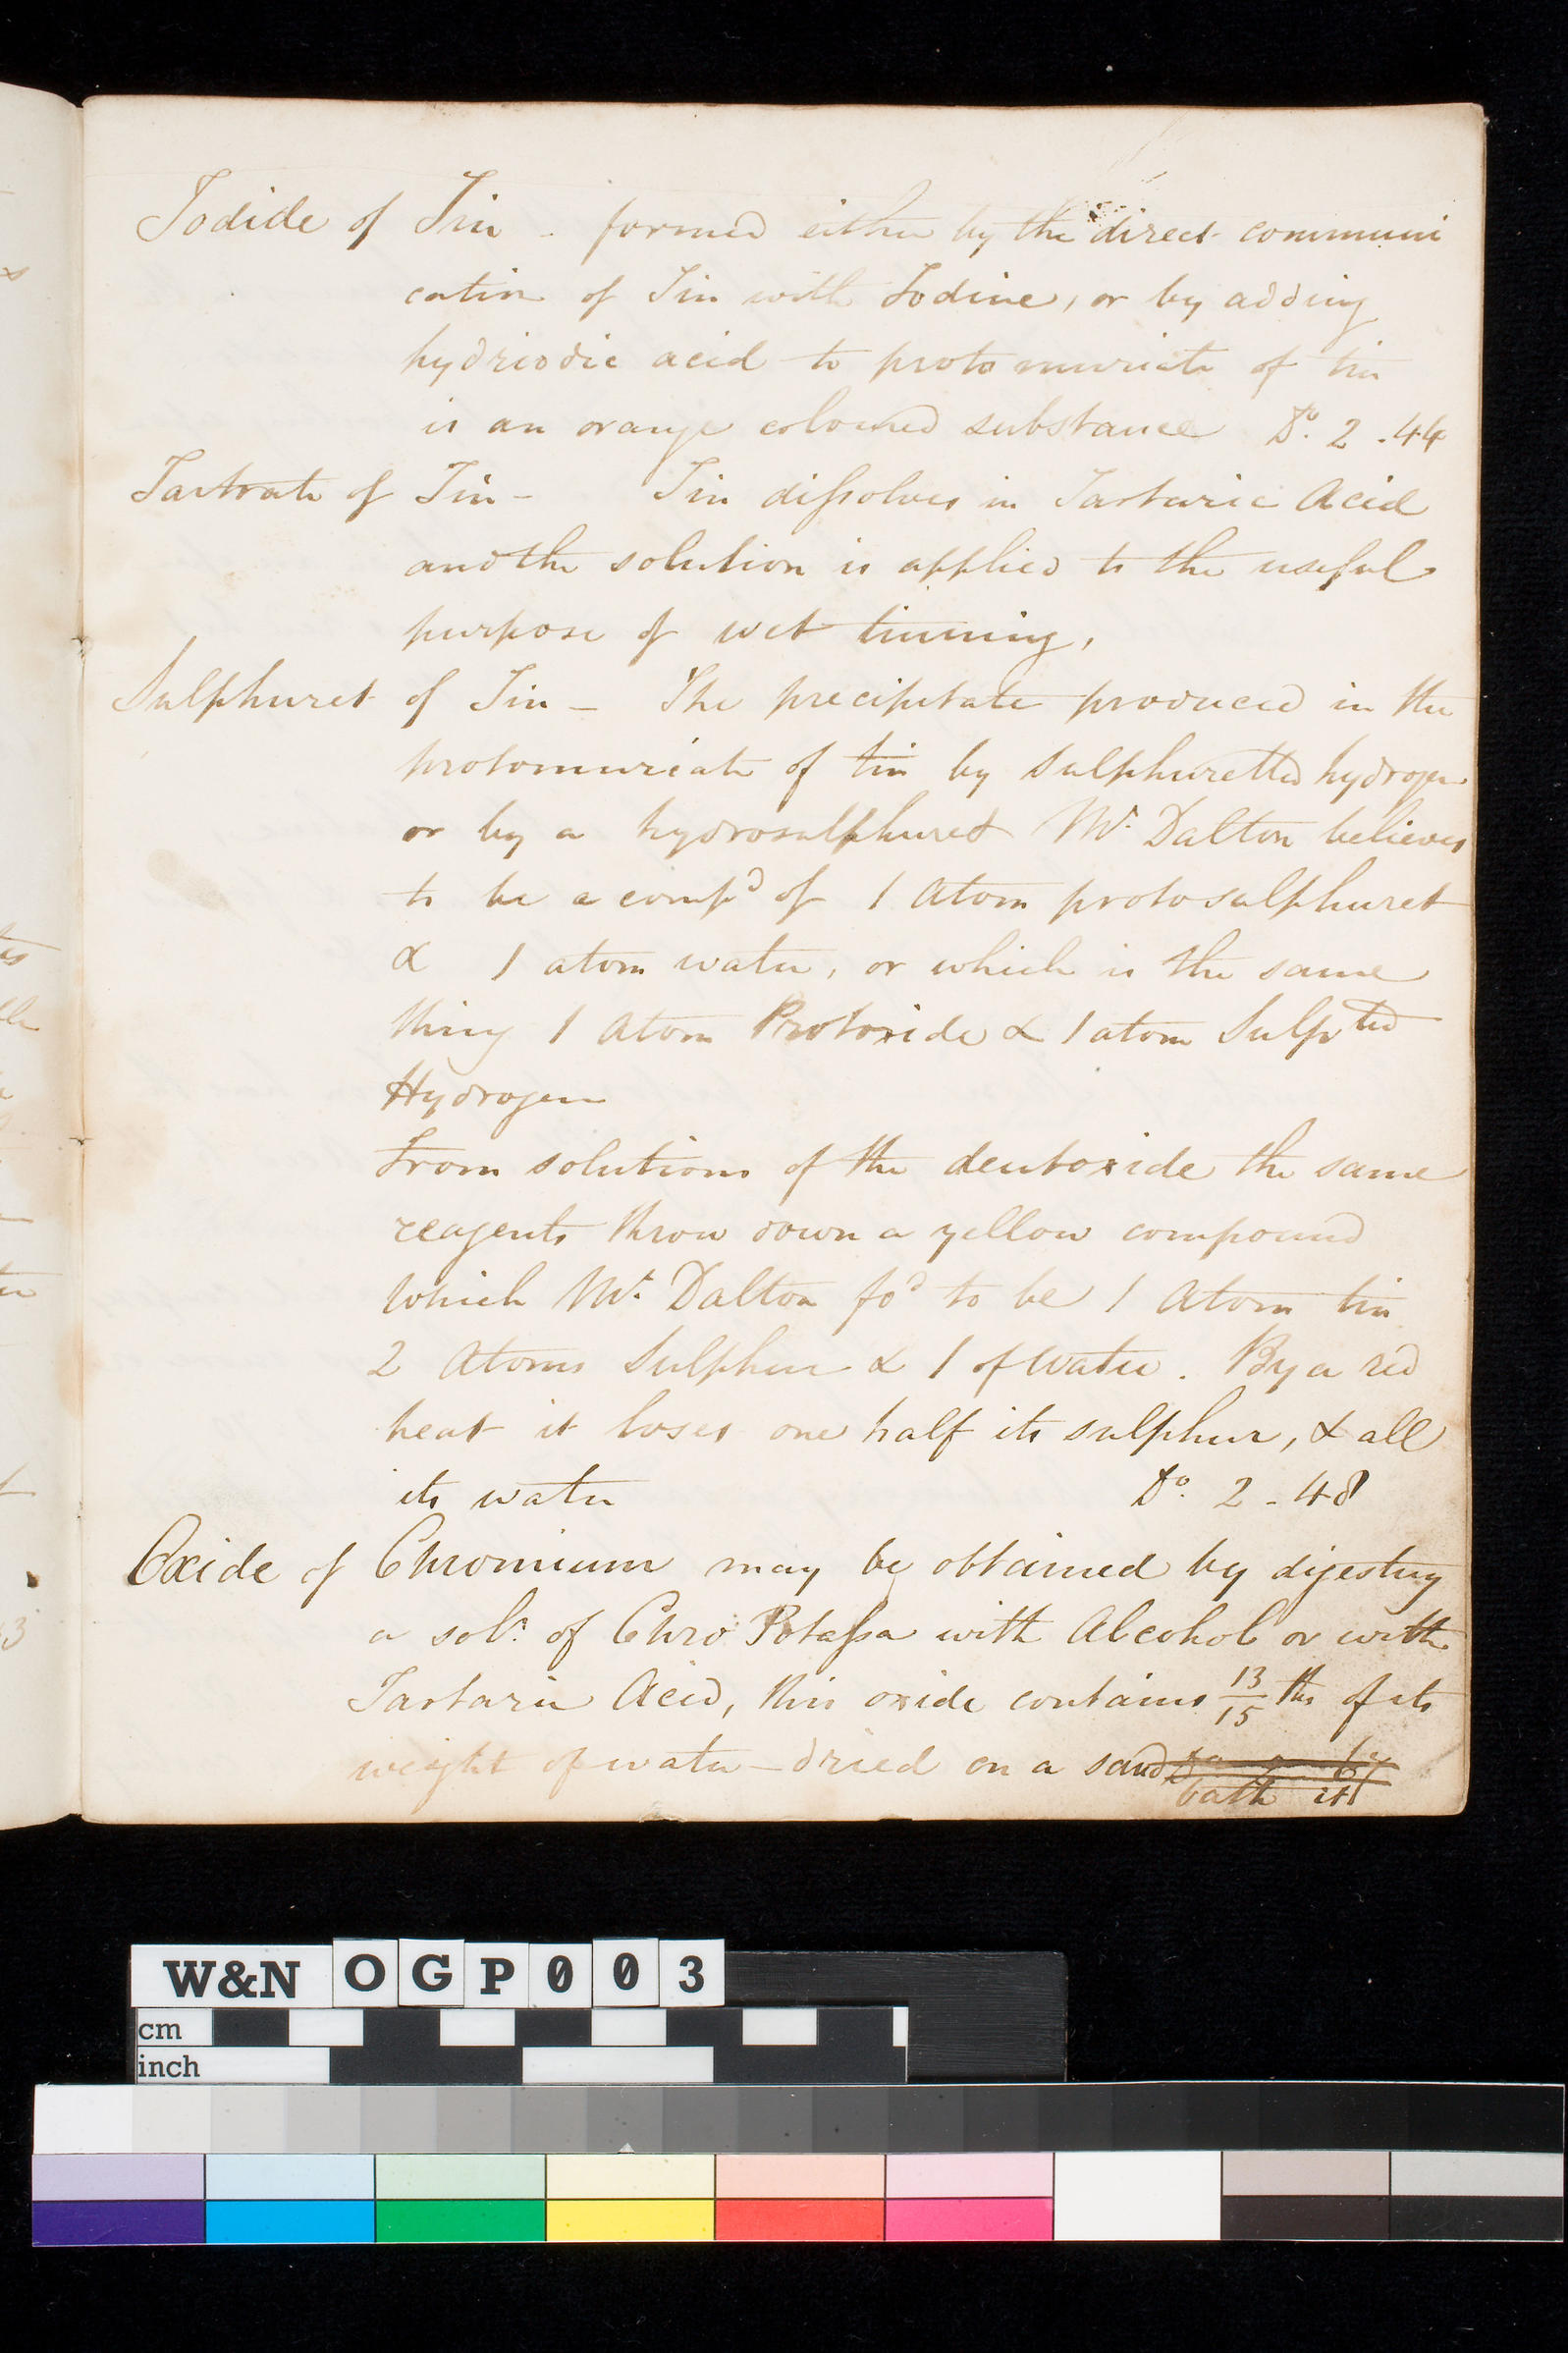 Iodide of Tin - formed either by the direct communi
cation of Tin with Iodine, or by adding
hydriodic acid to proto muriate of tin
is an orange coloured substance Do. 2 . 44
Tartrate of Tin - Tin dissolves in Tartaric Acid
and the solution is applied to the useful
purpose of wet tinning,
Sulphuret of Tin - The precipitate produced in the
protomuriate of tin by sulphuretted hydrogen
or by a hydrosulphuret Mr. Dalton believes
to be a compd of 1 Atom protosulphuret
& 1 atom water, or which is the same
thing 1 Atom Protoxide & 1 atom Sulpted
Hydrogen
From solutions of the deutoxide the same
reagents throw down a yellow compound
which Mr. Dalton fod to be 1 Atom tin
2 Atoms Sulphur & 1 of Water. By a red
heat it loses one half its sulphur, & all
its water Do. 2 - 48
Oxide of Chromium may be obtained by digesting
a soln. of Chro: Potassa with Alcohol or with
Tartaric Acid, this oxide contains 13/15 ths of its
weight of water - dried on a sand
bath it
W&N OGP003
cm
inch